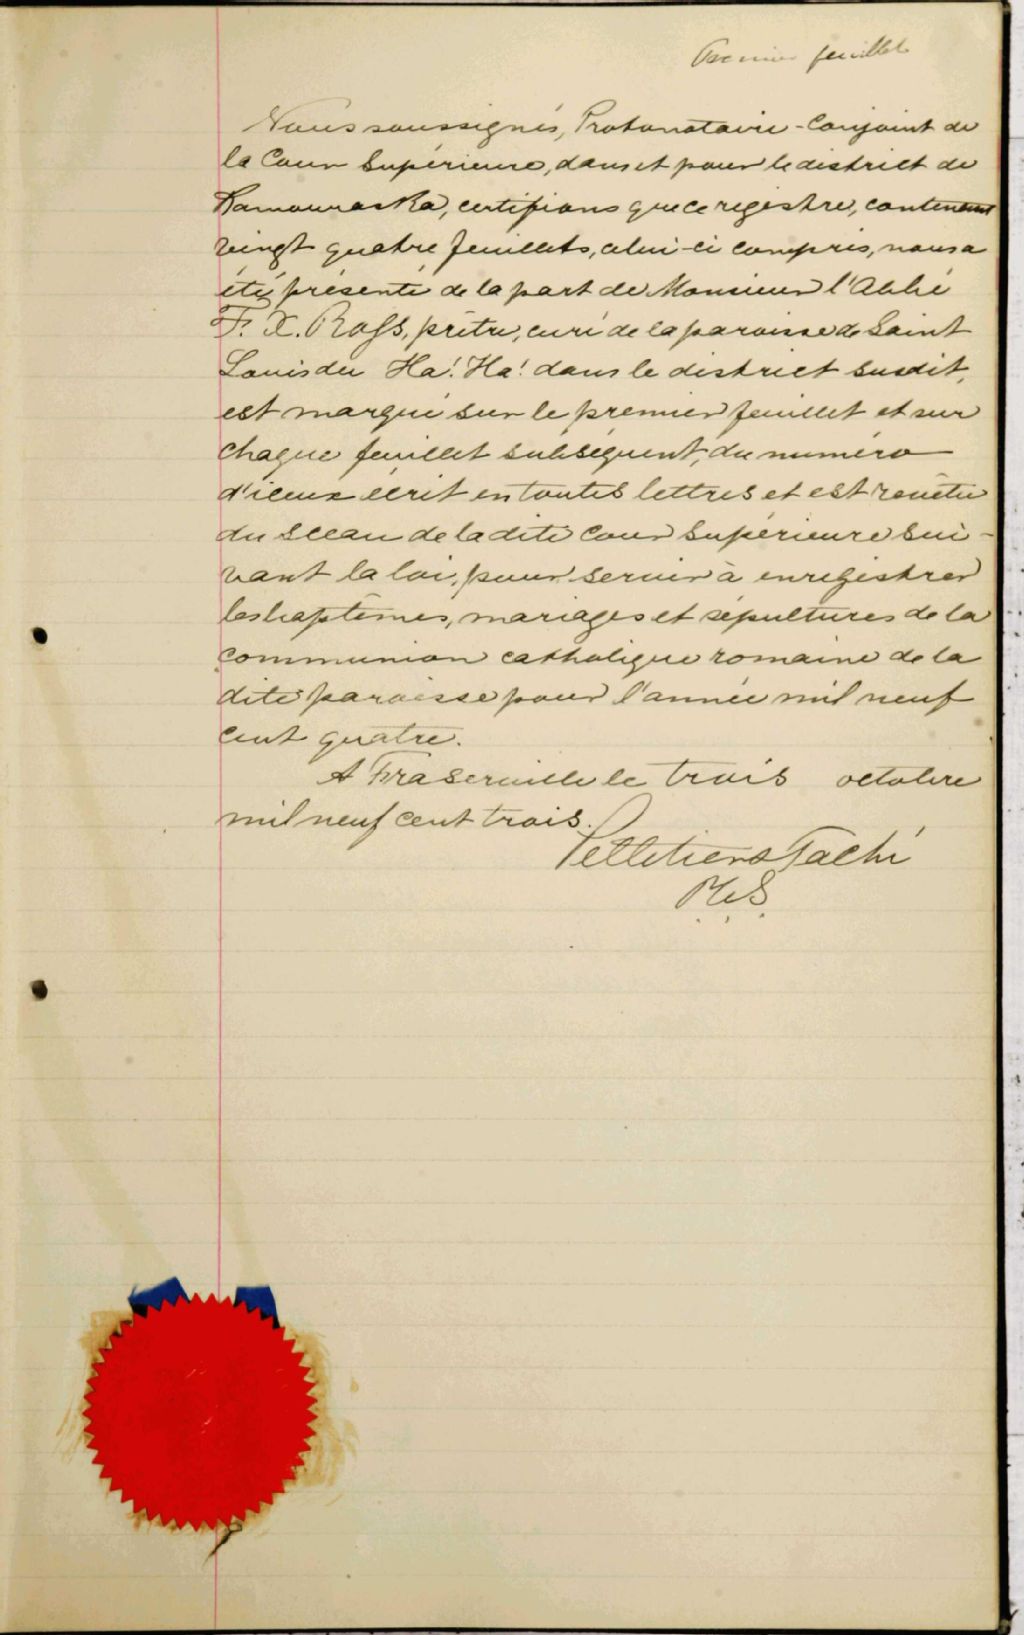 Premier feuillet
Nous soussignés, Protonotaire-Conjoint de
la Cour Supérieure, dans et pour le district de
Kamouraska, certifions que ce registre, contenant
vingt quatre feuillets, celui-ci compris, nous a
été présenté de la part de Monsieur l'Abbé
F. X. Ross, prêtre, curé de la paroisse de Saint
Louis du Ha! Ha! dans le district susdit,
est marqué sur le premier feuillet et sur
chaque feuillet subséquent, du numéro
d'iceux écrit en toutes lettres et est revêtu
du sceau de la dite Cour Supérieure sui-
vant la loi, pour servir à enregistrer
les baptêmes, mariages et sépultures de la
communion catholique romaine de la
dite paroisse pour l'année mil neuf
cent quatre.
A Fraserville le trois octobre
mil neuf cent trois.
Pelletier & Taché
P.C.S.